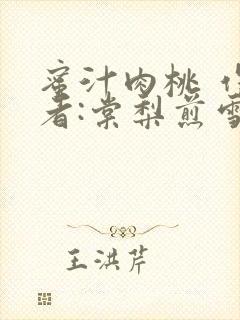 蜜汁肉桃 作
者:棠梨煎雪
王洪芹